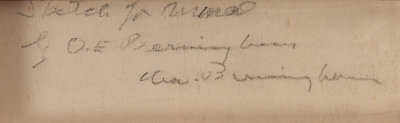 Sketch for mural
by O.E Berninghaus
Chas. Berninghaus